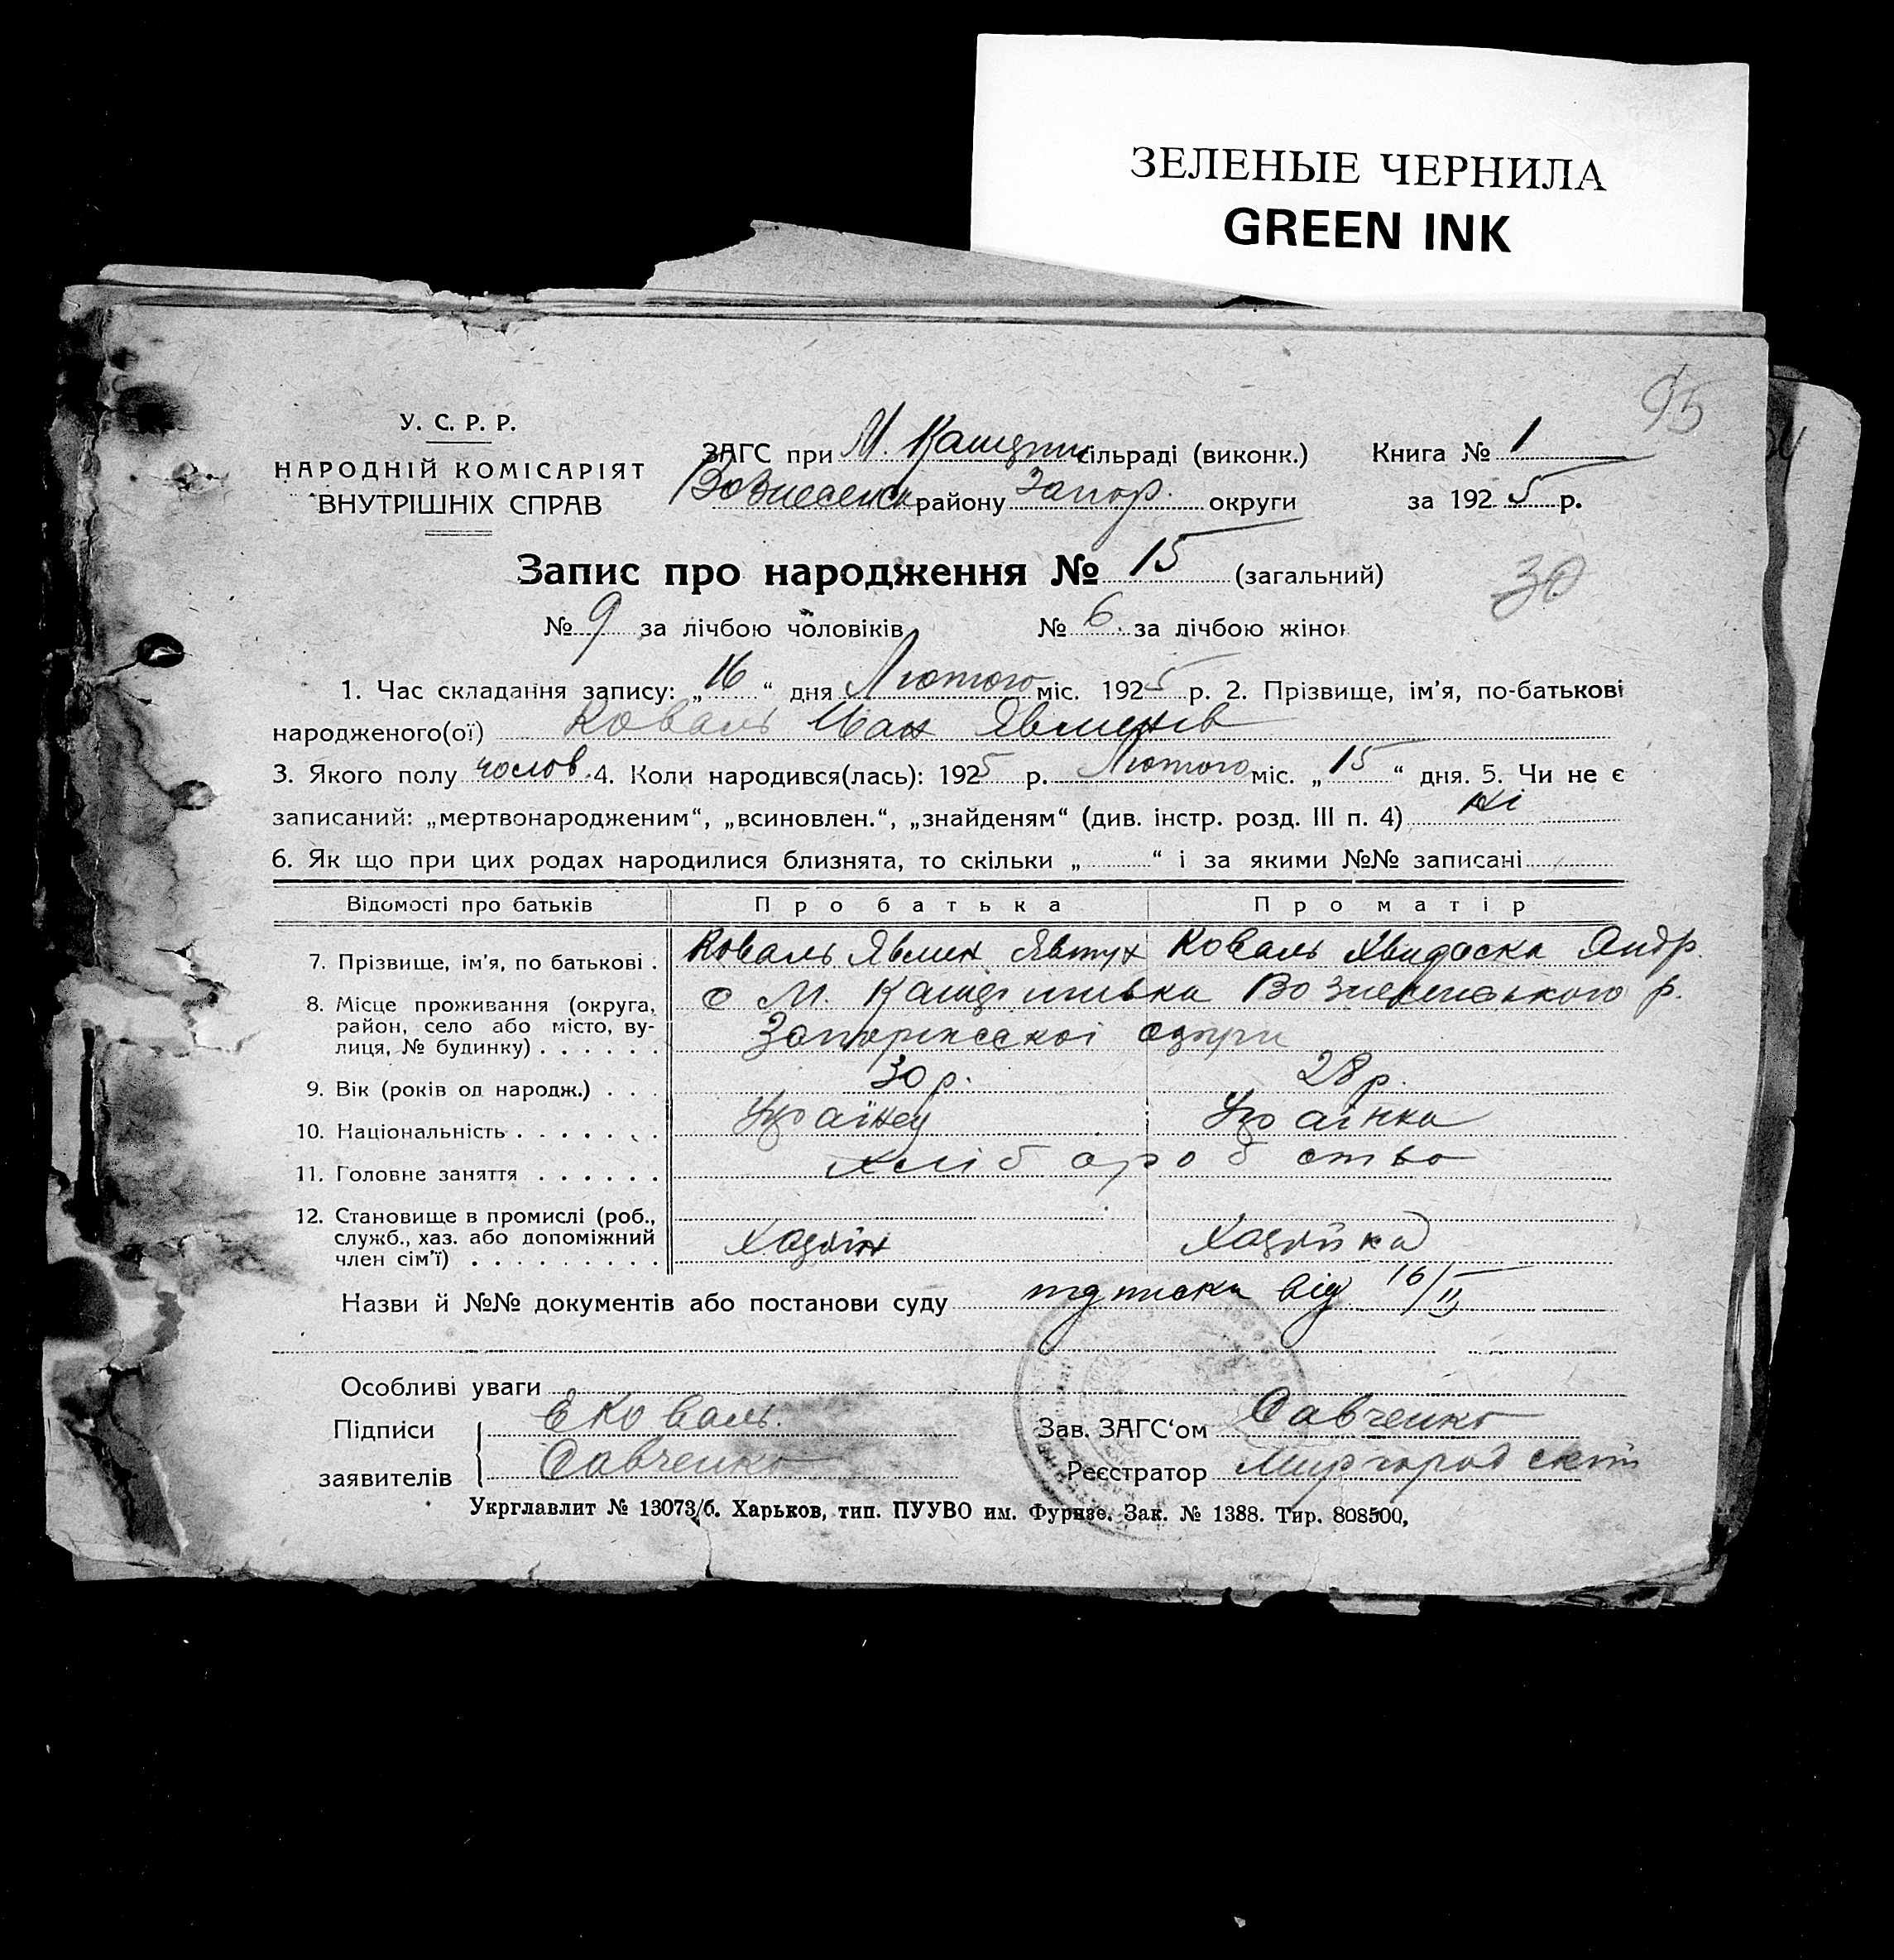 ЗЕЛЕНЫЕ ЧЕРНИЛА
GREEN INK
95
У. С. Р. Р.
НАРОДНІЙ КОМІСАРІЯТ
ВНУТРІШНІХ СПРАВ
ЗАГС при М. сільраді (виконк.) Книга № 1
Вознесенск району Запор. округи за 1925 р.
Запис про народження № 15 (загальний)
30
№ 9 за лічбою чоловіків № 6. за лічбою жінок
1. Час складання запису: „16“ дня Лютого міс. 1925 р. 2. Прізвище, ім'я, по-батькові
народженого(ої) Коваль Іван Явменів
3. Якого полу чолов. 4. Коли народився(лась): 1925 р. Лютого міс. „15“ дня. 5. Чи не є
записаний: „мертвонародженим“, „всиновлен.“, „знайденям“ (див. інстр. розд. III п. 4) ні
6. Як що при цих родах народилися близнята, то скільки „ “ і за якими №№ записані
Відомості про батьків Про батька Про матір
7. Прізвище, ім'я, по батькові . Коваль Явмен Явтух Коваль Хвидоска Андр.
8. Місце проживання (округа, район, село або місто, вулиця, № будинку) . . . . . . с М. Вознесенського р.
Запоріжської округи
9. Вік (років од народж.) . . . 30 р. 28 р.
10. Національність . . . . . . . Українец Українка
11. Головне заняття . . . . . . Хліборобство
12. Становище в промислі (роб., служб., хаз. або допоміжний член сім'ї) . . . . . . . . . Хазяїн Хазяйка
Назви й №№ документів або постанови суду підписка від 16/II
Особливі уваги
Підписи заявителів Є Коваль. Зав. ЗАГС‘ом Савченко
Савченко Реєстратор Миргородский
Укрглавлит № 13073/б. Харьков, тип. ПУУВО им. Фрунзе. Зак. № 1388. Тир. 808500,